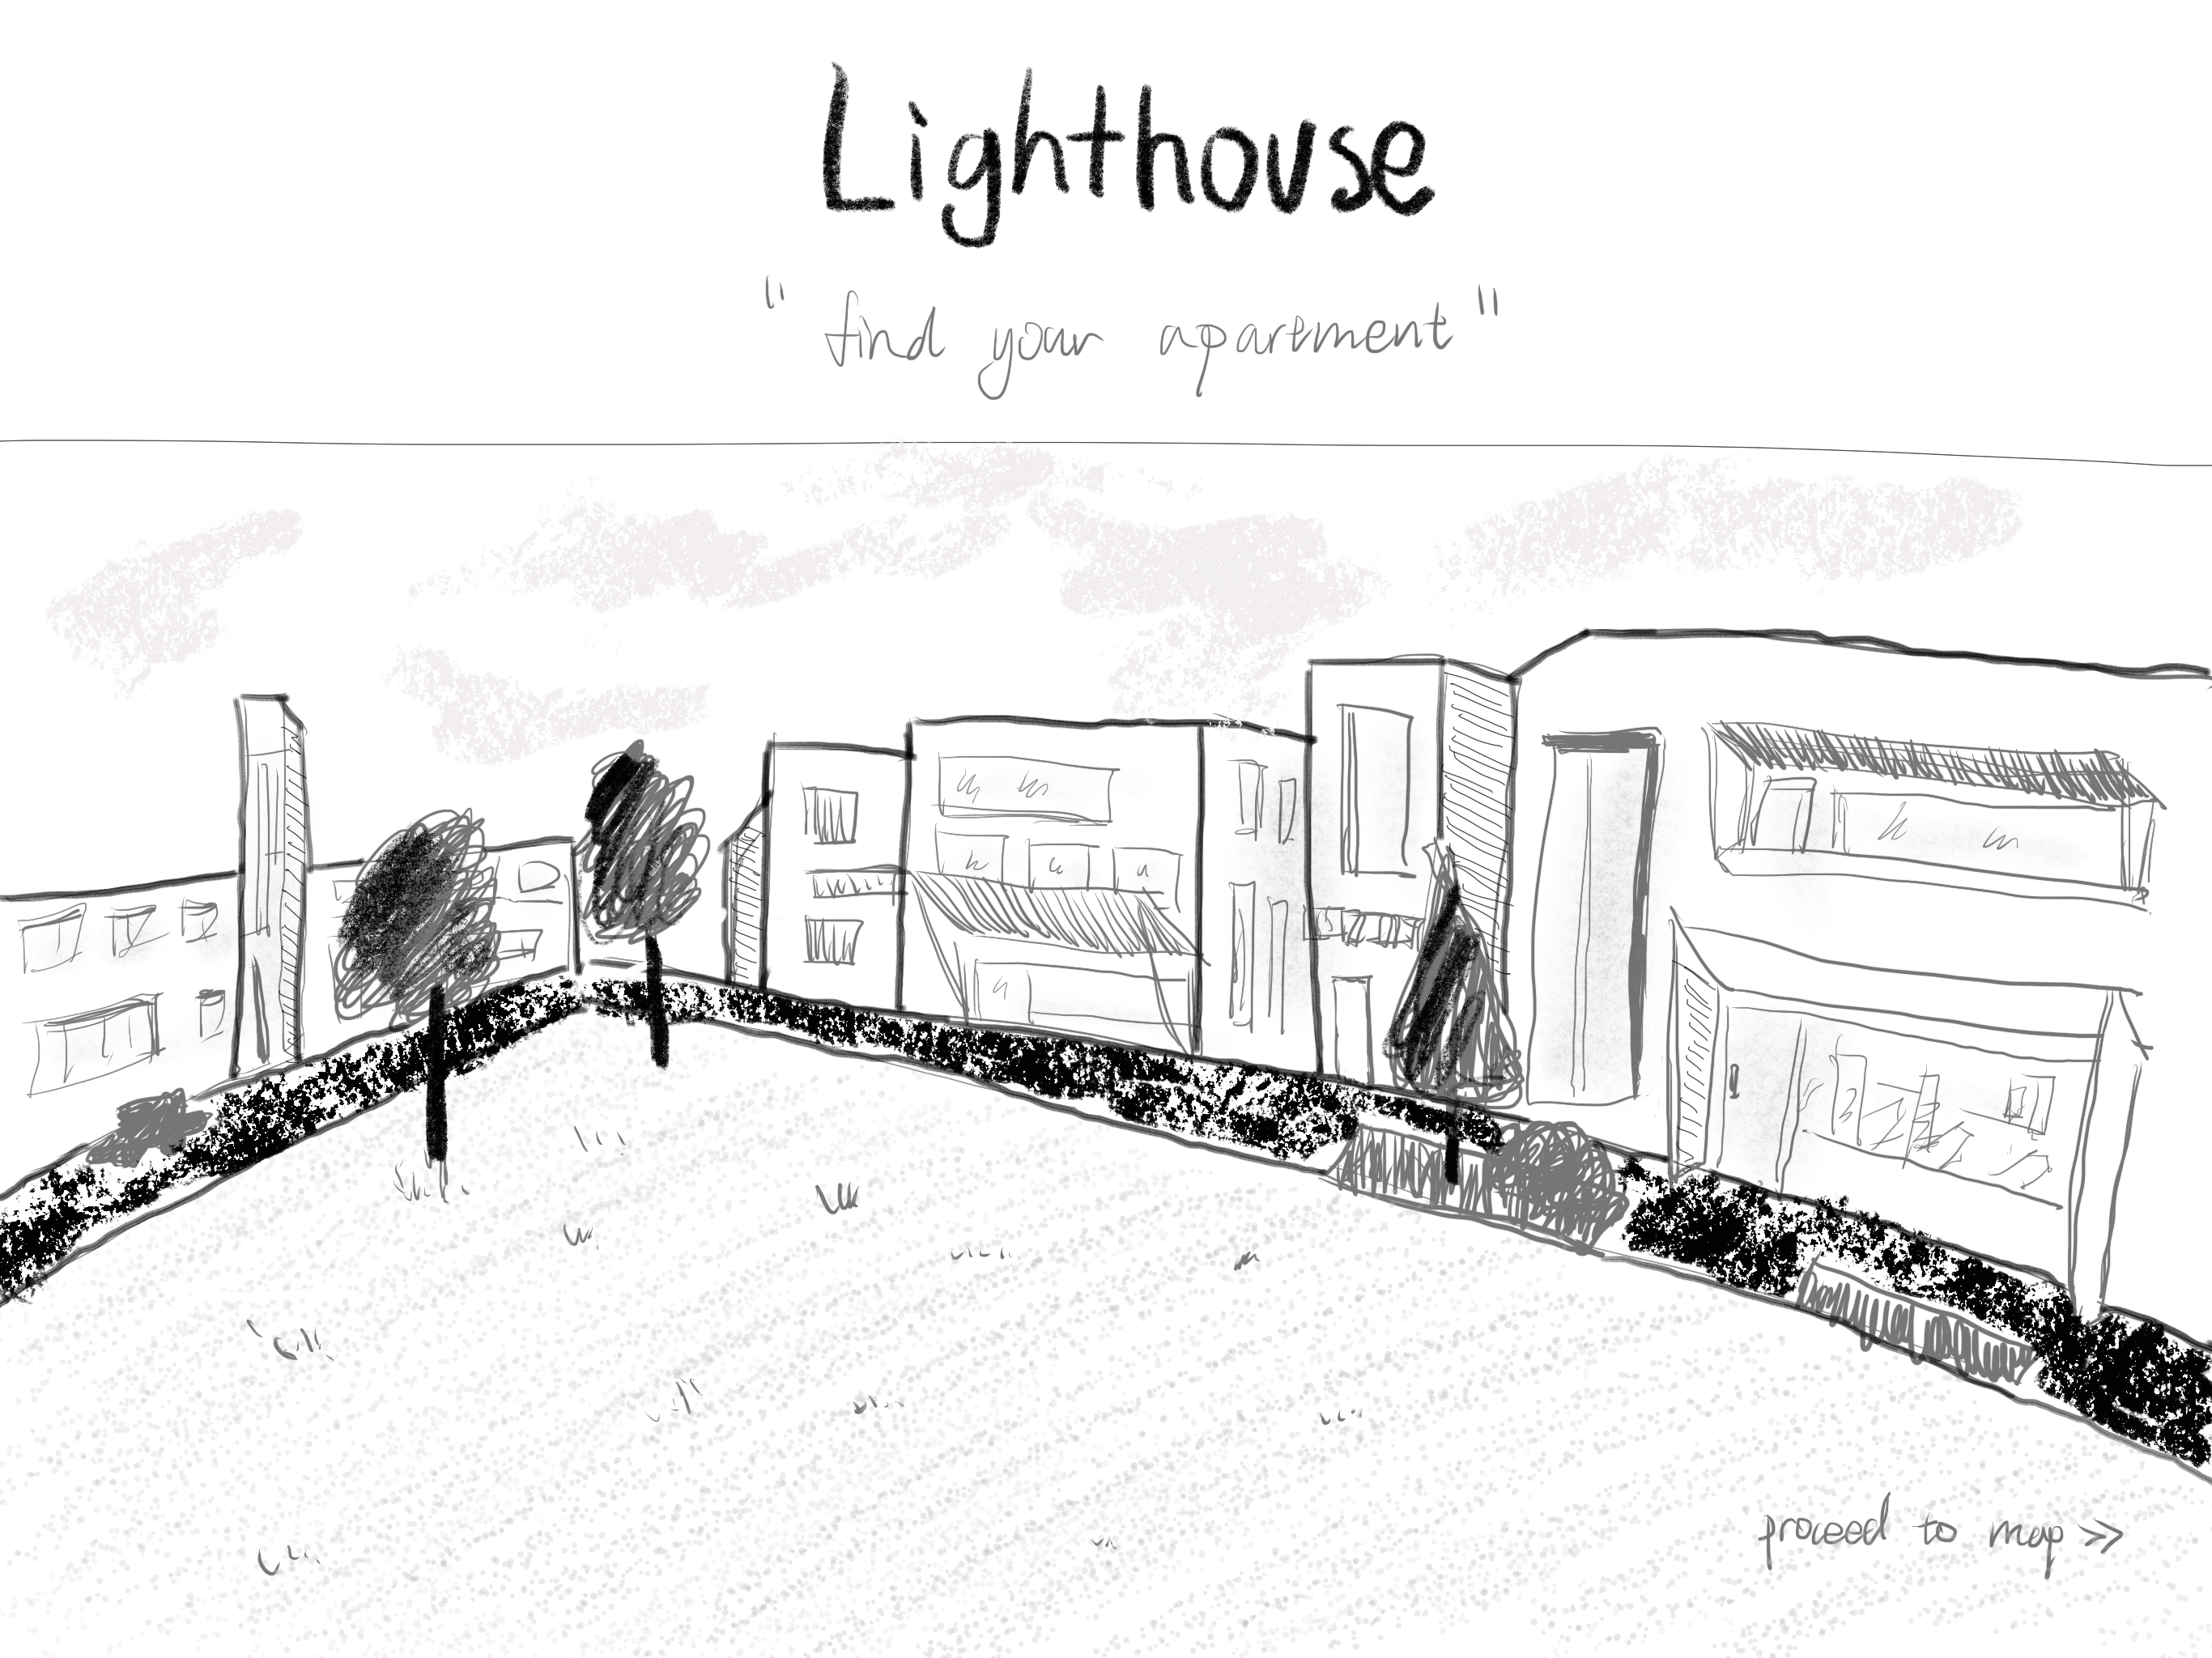 Lighthouse
"find your apartment"
proceed to map >>